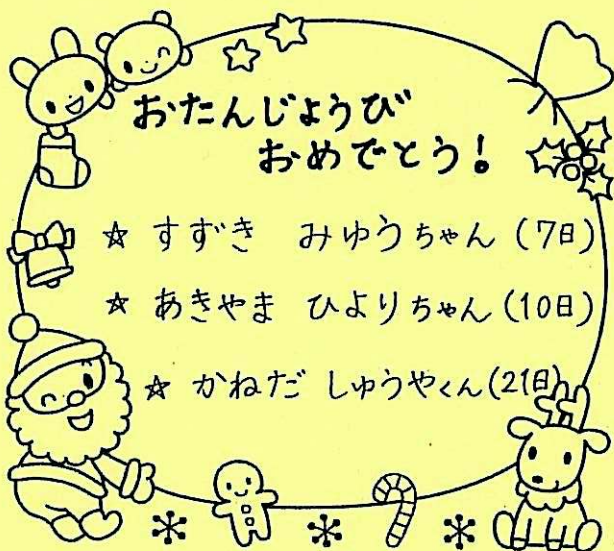 おたんじょうび
おめでとう!
☆ すずき みゆうちゃん (7日)
☆ あきやま ひよりちゃん (10日)
☆ かねだ しゅうやくん (21日)